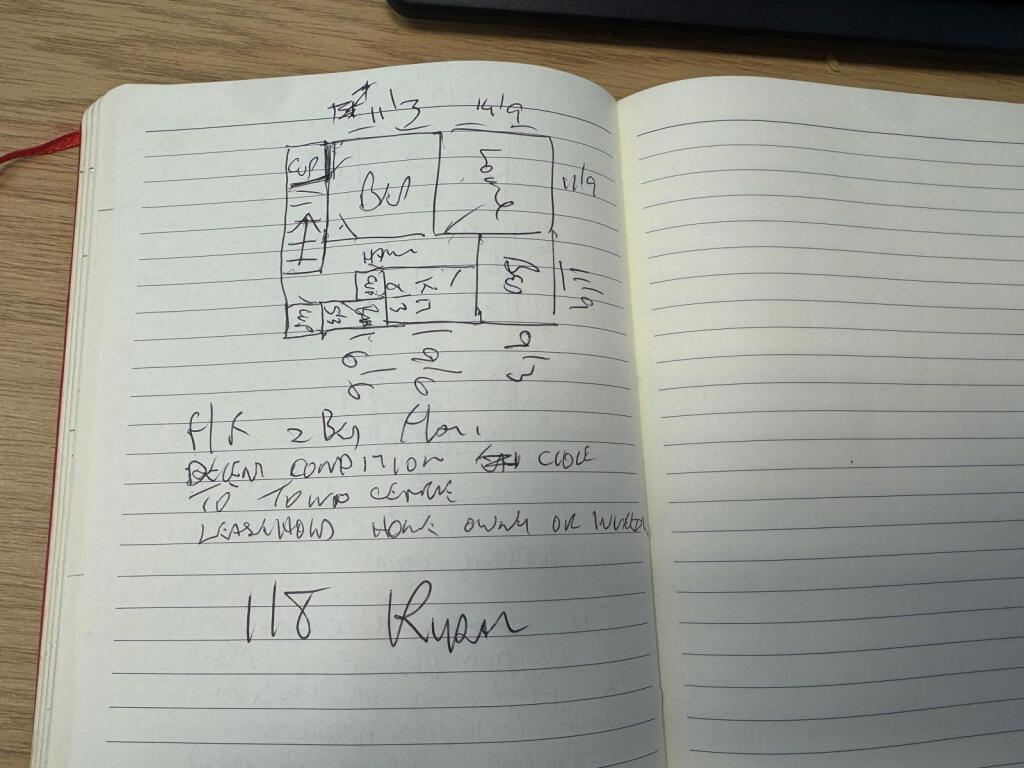 11'3 14'9
CUP
BED
Lounge
11'9
HALL
CUP
KIT
BED
11'9
CUP
6'6
9'6
9'3
F/F 2 BED Flat.
DECENT CONDITION CLOSE
TO TOWN CENTRE
LEASEHOLD HOME OWNER OR INVESTOR
118 Ryan